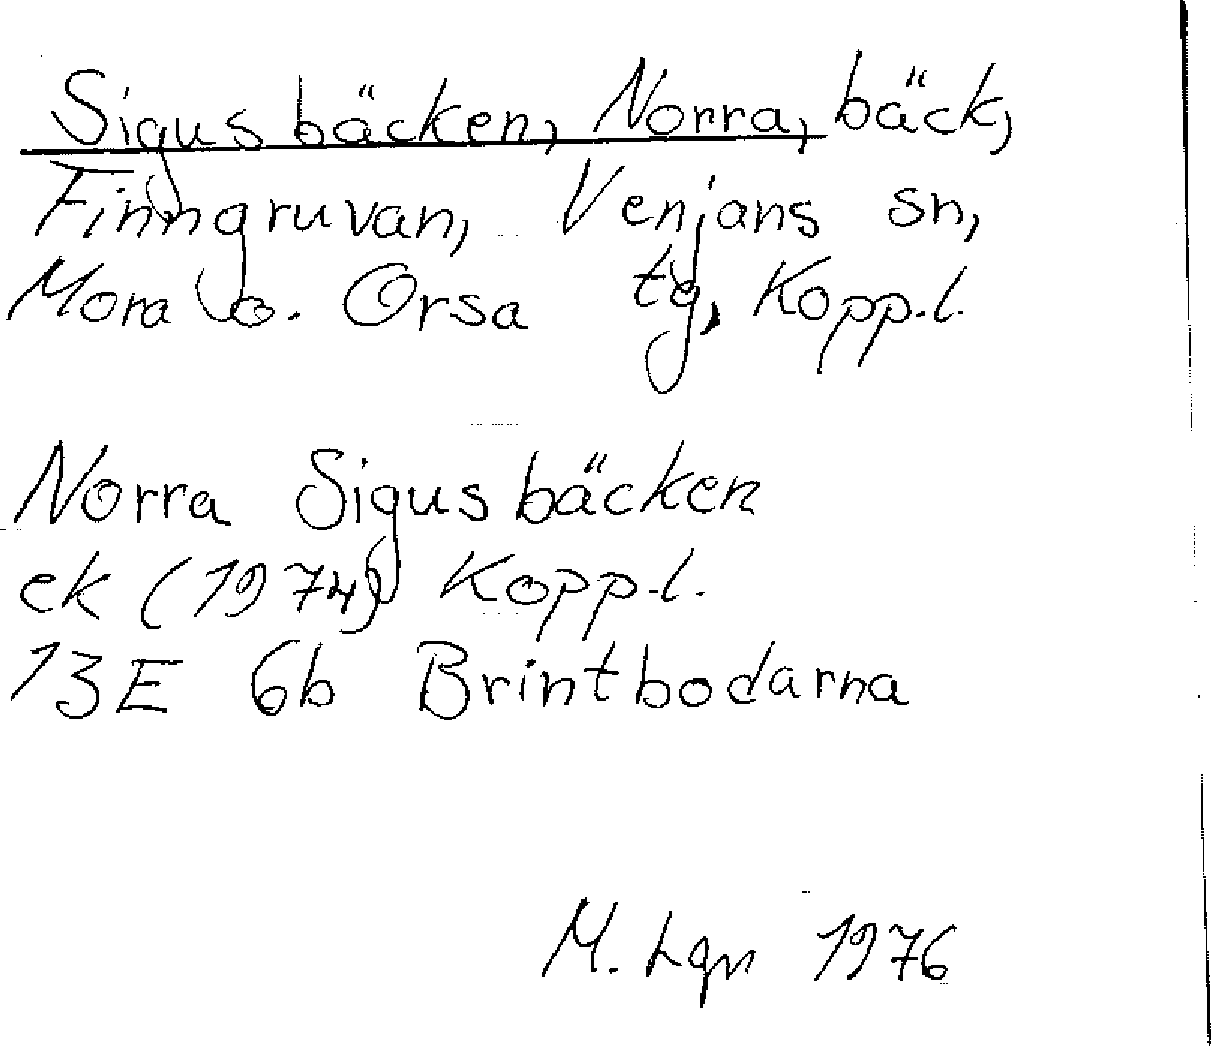 Sigusbäcken, Norra, bäck,
Finngruvan, Venjans sn,
Mora o. Orsa tg, Kopp.l.
Norra Sigusbäcken
ek (1974) Kopp.l.
13E 6b Brintbodarna
M. Lgn 1976